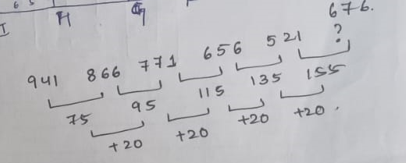 676.
941 866 771 656 521 ?
75 95 115 135 155
+20 +20 +20 +20.